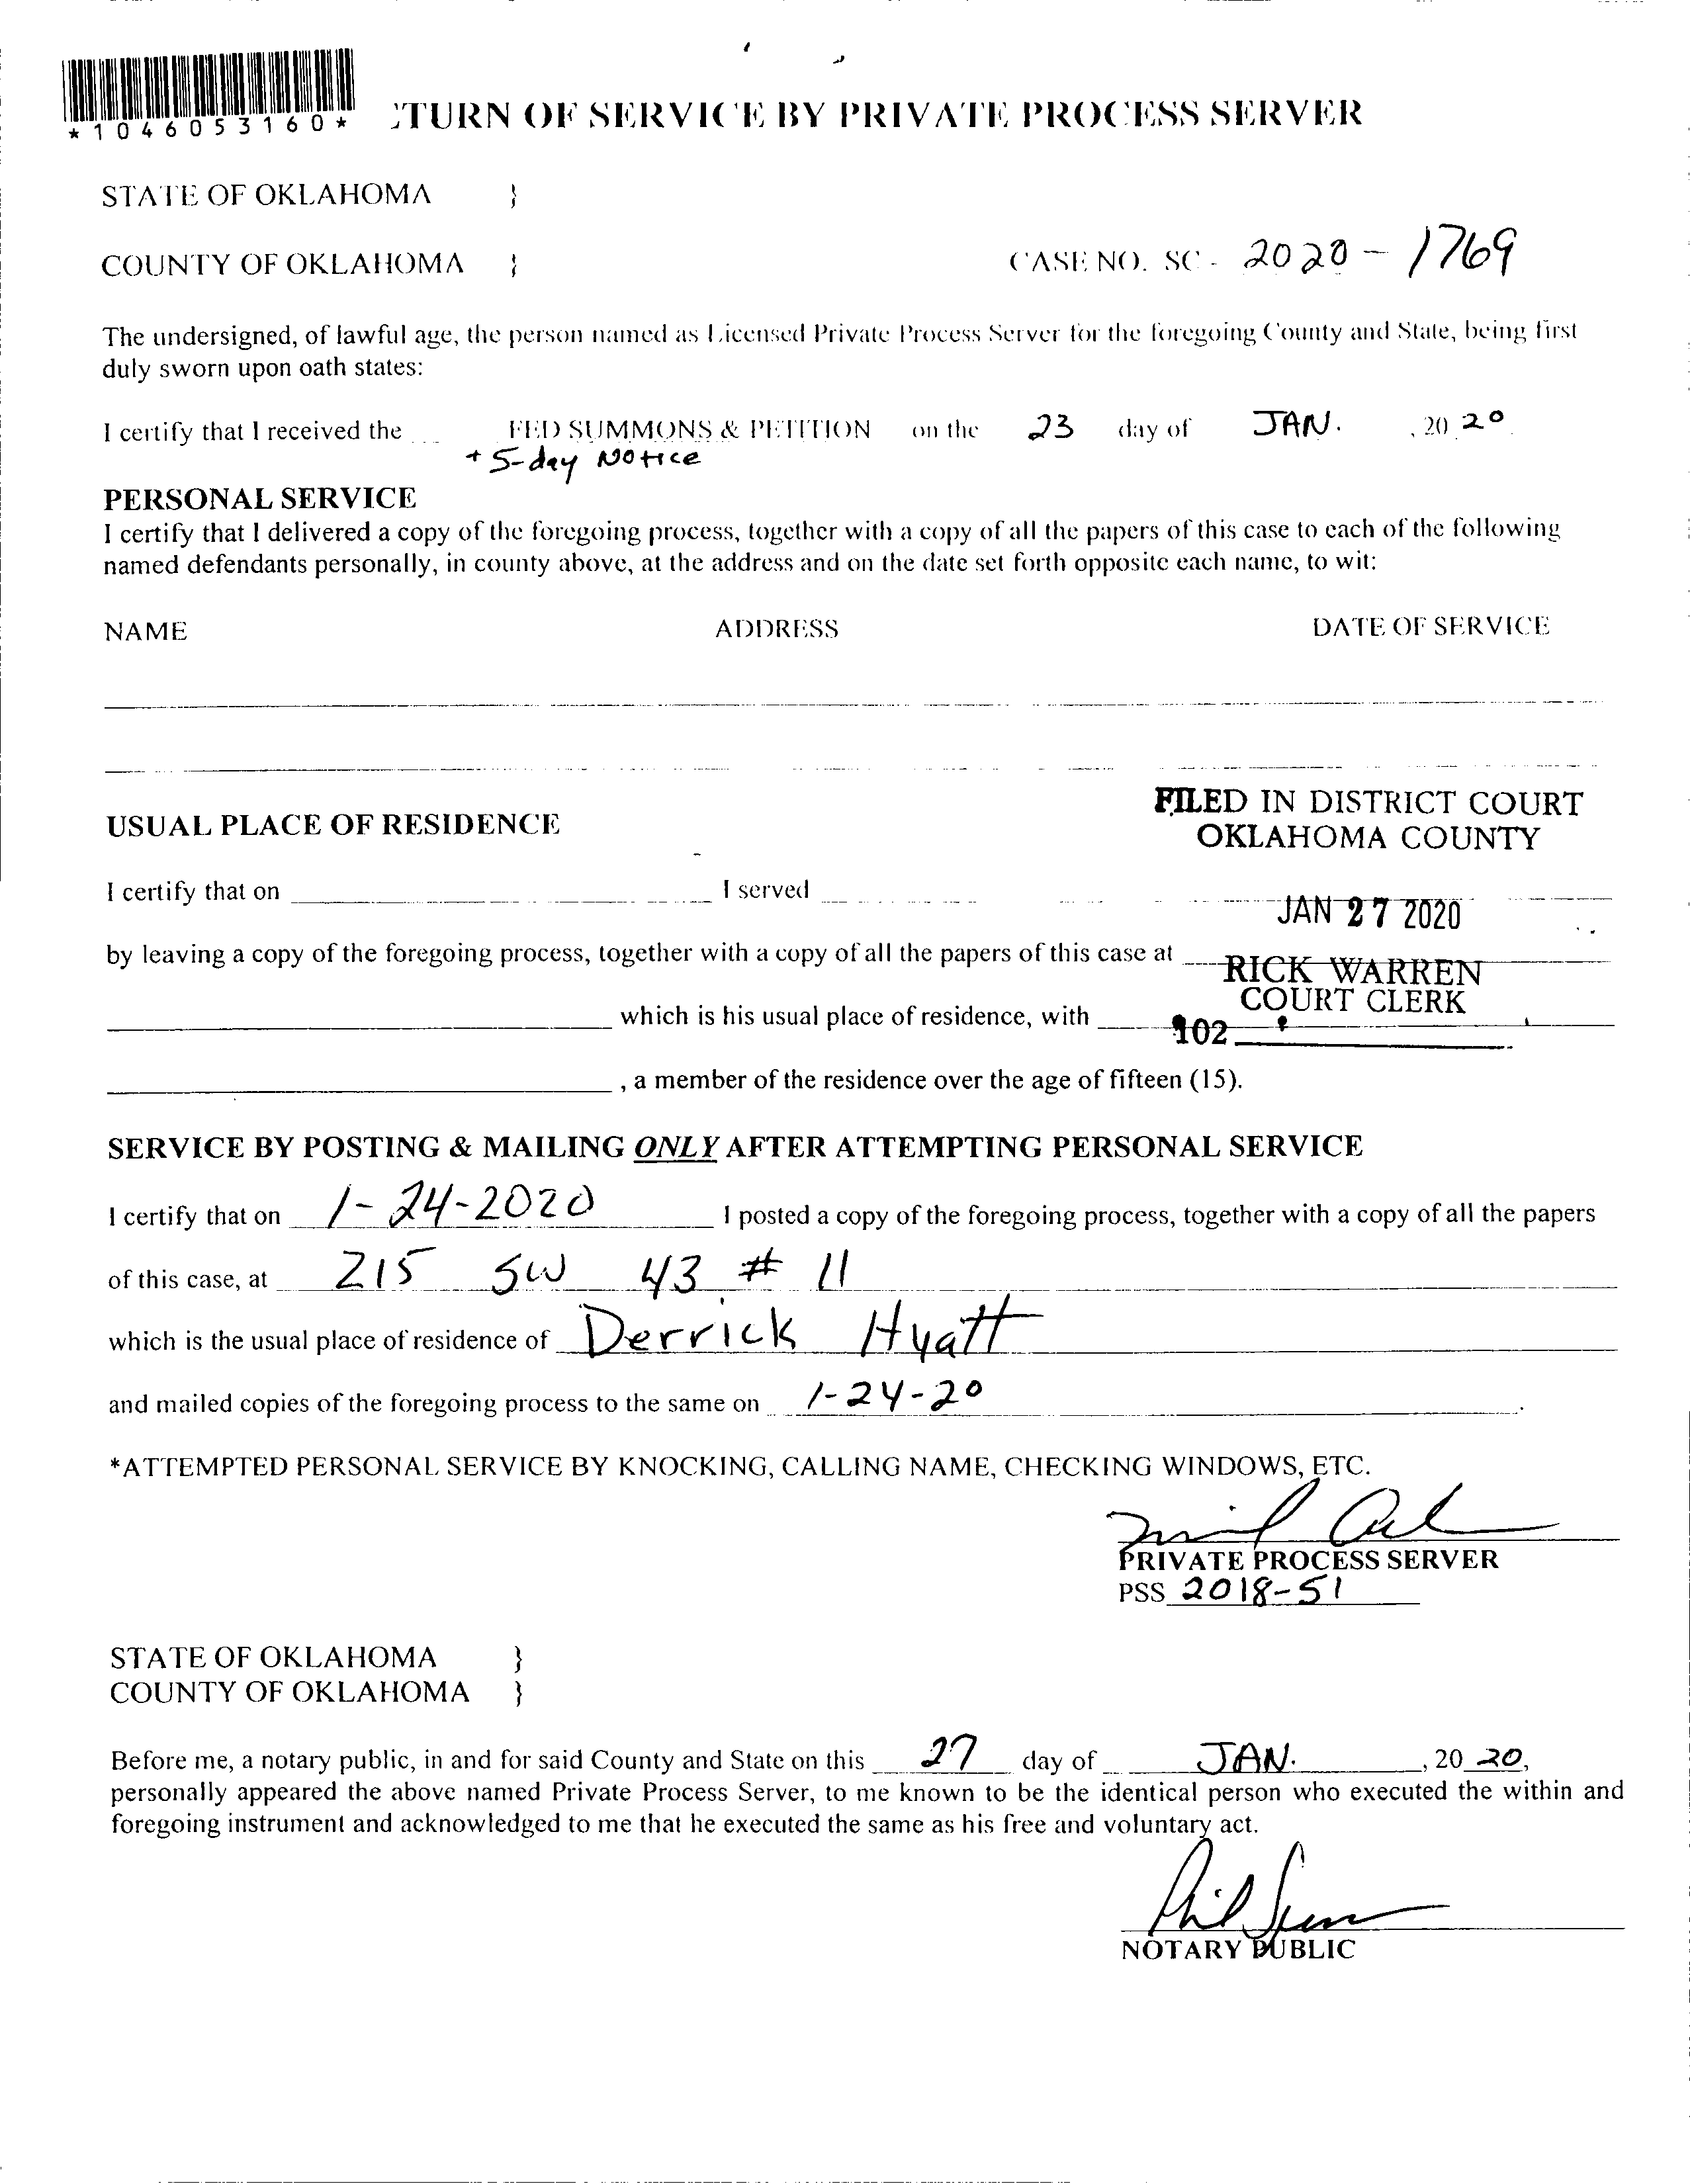 *1046053160*
TURN OF SERVICE BY PRIVATE PROCESS SERVER
STATE OF OKLAHOMA }
COUNTY OF OKLAHOMA } CASE NO. SC - 2020 - 1769
The undersigned, of lawful age, the person named as Licensed Private Process Server for the foregoing County and State, being first
duly sworn upon oath states:
I certify that I received the FED SUMMONS & PETITION on the 23 day of JAN. , 20 20
+ 5-day Notice
PERSONAL SERVICE
I certify that I delivered a copy of the foregoing process, together with a copy of all the papers of this case to each of the following
named defendants personally, in county above, at the address and on the date set forth opposite each name, to wit:
NAME ADDRESS DATE OF SERVICE
FILED IN DISTRICT COURT
OKLAHOMA COUNTY
USUAL PLACE OF RESIDENCE
I certify that on I served
JAN 27 2020
by leaving a copy of the foregoing process, together with a copy of all the papers of this case at
RICK WARREN
COURT CLERK
which is his usual place of residence, with
102
, a member of the residence over the age of fifteen (15).
SERVICE BY POSTING & MAILING ONLY AFTER ATTEMPTING PERSONAL SERVICE
I certify that on 1-24-2020 I posted a copy of the foregoing process, together with a copy of all the papers
of this case, at 215 SW 43 # 11
which is the usual place of residence of Derrick Hyatt
and mailed copies of the foregoing process to the same on 1-24-20 .
*ATTEMPTED PERSONAL SERVICE BY KNOCKING, CALLING NAME, CHECKING WINDOWS, ETC.
PRIVATE PROCESS SERVER
PSS 2018-51
STATE OF OKLAHOMA }
COUNTY OF OKLAHOMA }
Before me, a notary public, in and for said County and State on this 27 day of JAN. , 20 20,
personally appeared the above named Private Process Server, to me known to be the identical person who executed the within and
foregoing instrument and acknowledged to me that he executed the same as his free and voluntary act.
NOTARY PUBLIC